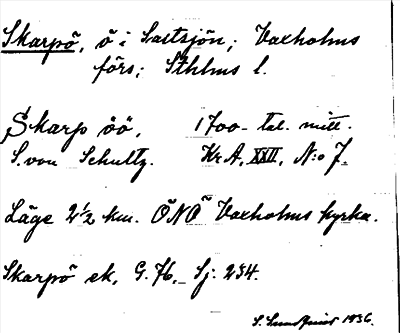 Skarpö, ö i Saltsjön; Vaxholms
förs; Sthlms l.
Skarp öö, 1700-tal. mitt.
S. von Schultz. Kr A, XXII, N:o 7.
Läge 2½ km. ÖNÖ Vaxholms kyrka.
Skarpö ek, G. 76, Sj: 234.
S. Sundquist 1936.